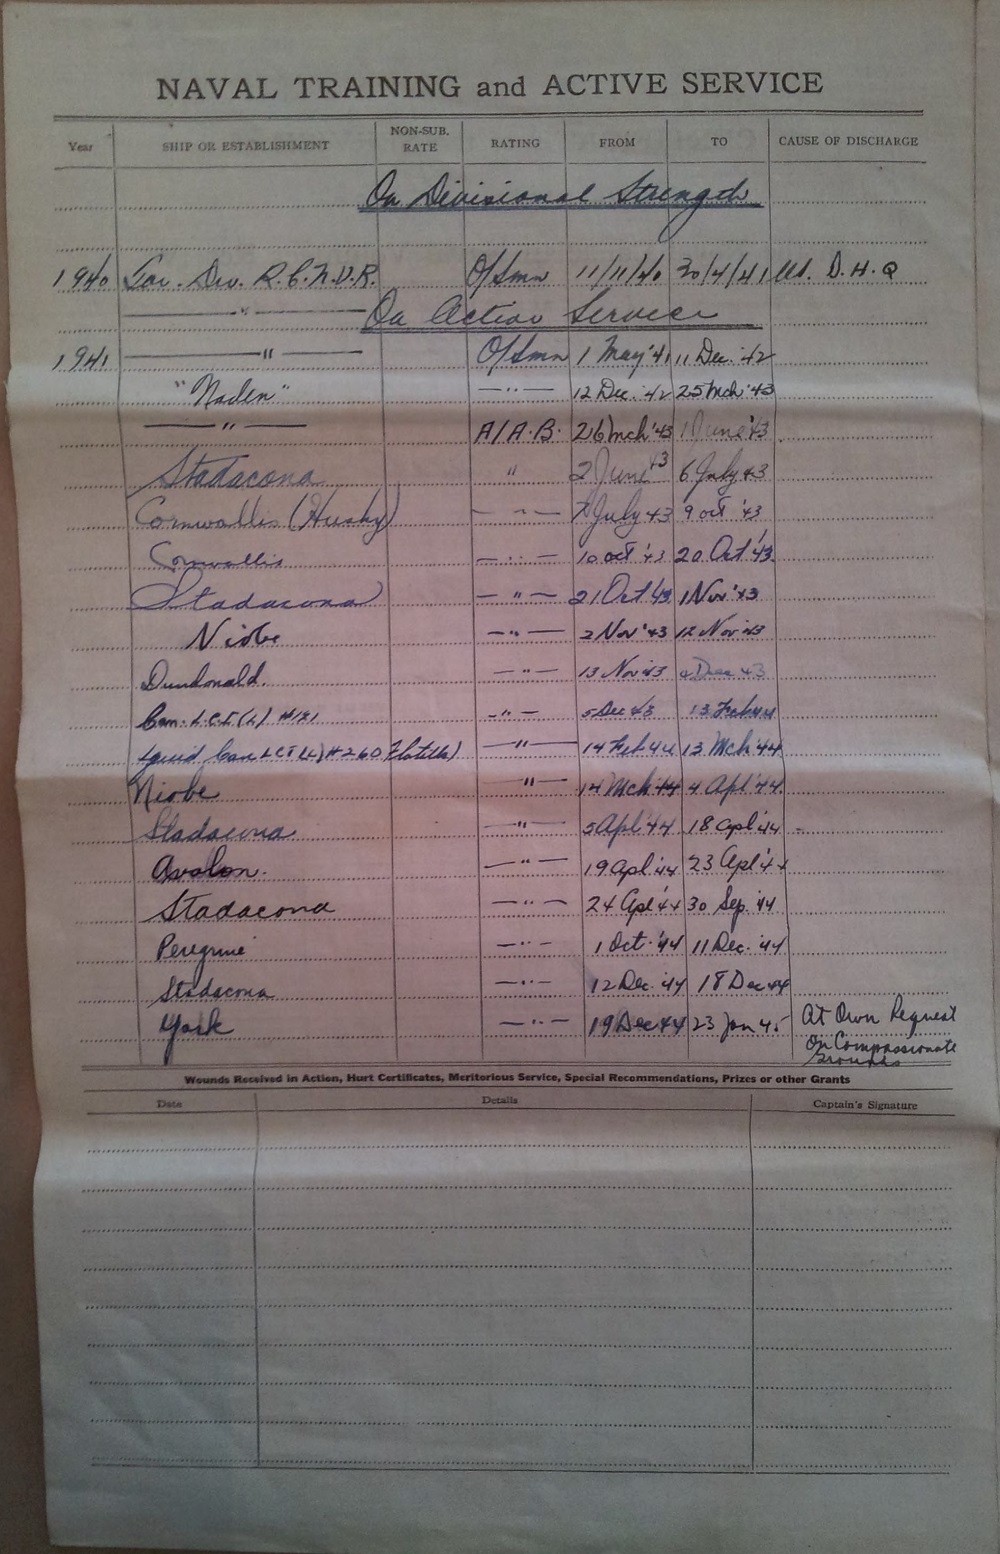 NAVAL TRAINING and ACTIVE SERVICE
Year SHIP OR ESTABLISHMENT NON-SUB. RATE RATING FROM TO CAUSE OF DISCHARGE
On Divisional Strength
1940 Tor. Div. R.C.N.V.R. O/Smn 11/11/40 30/4/41 D.H.Q
—"— On Active Service
1941 —"— O/Smn 1 May '41 11 Dec. '42
"Naden" —"— 12 Dec. '42 25 Mch '43
—"— A/A.B. 26 Mch '43 1 June '43
Stadacona " 2 June '43 6 July 43
Cornwallis (Husky) —"— 7 July 43 9 Oct '43
Cornwallis —"— 10 Oct '43 20 Oct '43
Stadacona —"— 21 Oct '43 1 Nov '43
Niobe —"— 2 Nov '43 12 Nov '43
Dundonald. —"— 13 Nov '43 4 Dec 43
Can. L.C.I.(L) # 121 —"— 5 Dec 43 13 Feb 44
Can LCI(L) # 260 Flotilla) —"— 14 Feb 44 13 Mch '44
Niobe —"— 14 Mch '44 4 Apl '44
Stadacona —"— 5 Apl '44 18 Apl '44
Avalon. —"— 19 Apl '44 23 Apl '44
Stadacona —"— 24 Apl '44 30 Sep. '44
Peregrine —"— 1 Oct. '44 11 Dec. '44
Stadacona —"— 12 Dec. '44 18 Dec 44
York —"— 19 Dec 44 23 Jan 45 At Own Request
On Compassionate
Grounds
Wounds Received in Action, Hurt Certificates, Meritorious Service, Special Recommendations, Prizes or other Grants
Date Details Captain's Signature